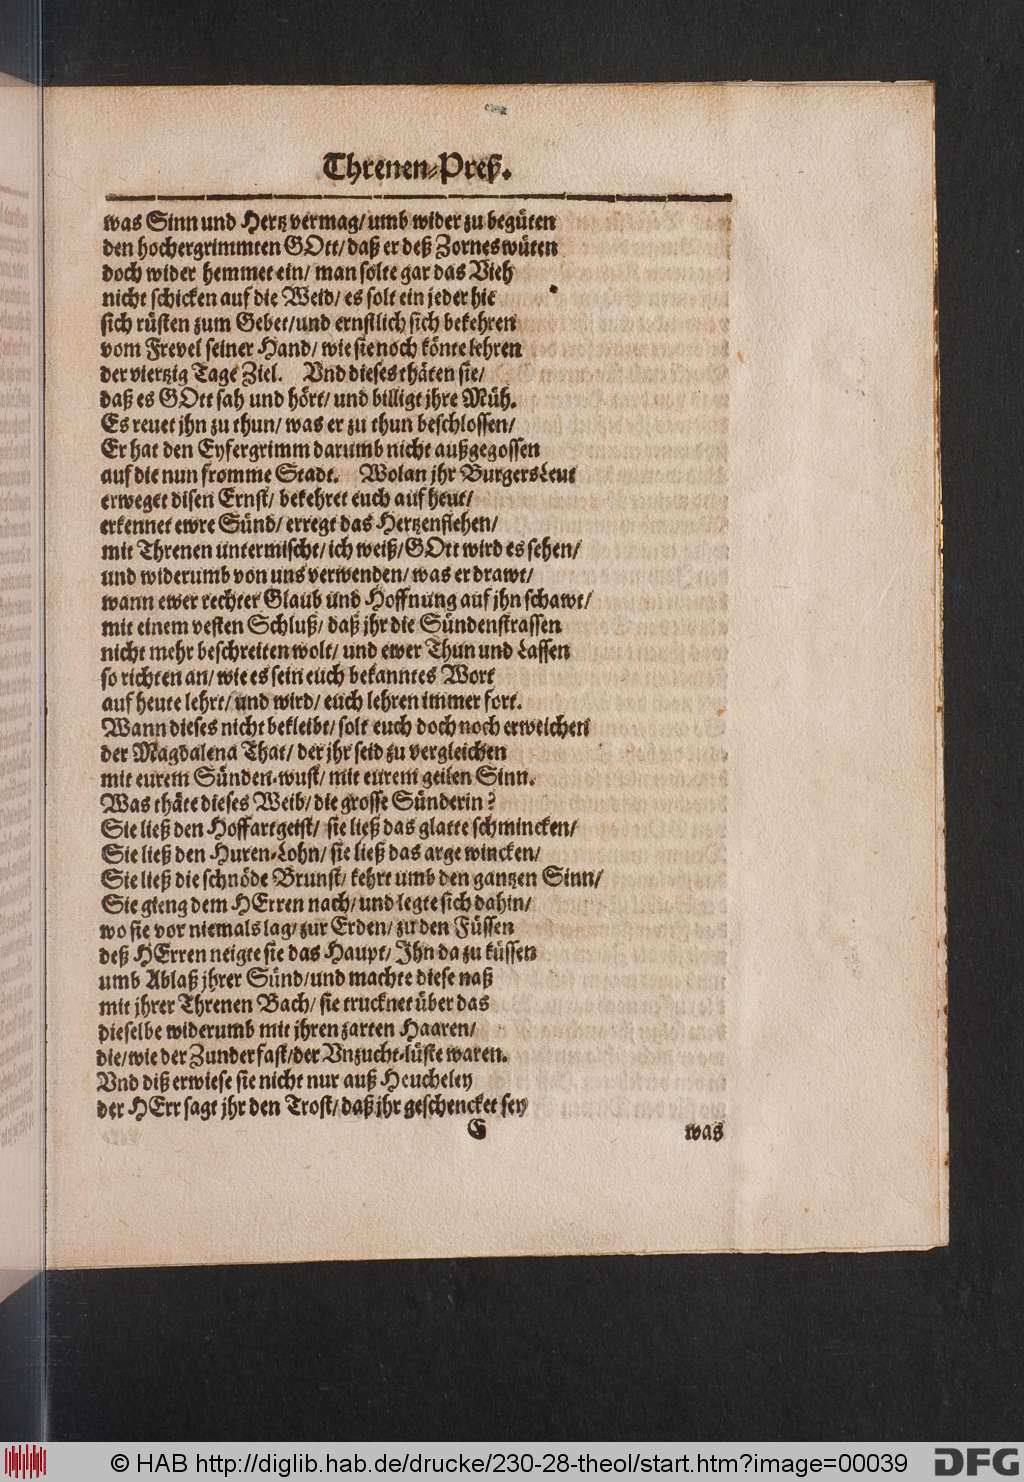 Threnen-Preß.
was Sinn und Hertz vermag/ umb wider zu begüten
den hochergrimmten GOtt/ daß er deß Zornes wüten
doch wider hemmet ein/ man solte gar das Vieh
nicht schicken auf die Weid/ es solt ein jeder hie
sich rüsten zum Gebet/ und ernstlich sich bekehren
vom Frevel seiner Hand/ wie sie noch könte lehren
der viertzig Tage Ziel. Vnd dieses thäten sie/
daß es GOtt sah und hört/ und billigt jhre Müh.
Es reuet jhn zu thun/ was er zu thun beschlossen/
Er hat den Eyfergrimm darumb nicht außgegossen
auf die nun fromme Stadt. Wolan jhr BurgersLeut
erweget disen Ernst/ bekehret euch auf heut/
erkennet ewre Sünd/ erregt das Hertzenflehen/
mit Threnen untermischt/ ich weiß/ GOtt wird es sehen/
und widerumb von uns verwenden/ was er drawt/
wann ewer rechter Glaub und Hoffnung auf jhn schawt/
mit einem vesten Schluß/ daß jhr die Sündenstrassen
nicht mehr beschreiten wolt/ und ewer Thun und Lassen
so richten an/ wie es sein euch bekanntes Wort
auf heute lehrt/ und wird/ euch lehren immer fort.
Wann dieses nicht bekleibt/ solt euch doch noch erweichen
der Magdalena That/ der jhr seid zu vergleichen
mit eurem Sünden-wust/ mit eurem geilen Sinn.
Was thäte dieses Weib/ die grosse Sünderin?
Sie ließ den Hoffartgeist/ sie ließ das glatte schmincken/
Sie ließ den Huren-Lohn/ sie ließ das arge wincken/
Sie ließ die schnöde Brunst/ kehrt umb den gantzen Sinn/
Sie gieng dem HErren nach/ und legte sich dahin/
wo sie vor niemals lag/ zur Erden/ zu den Füssen
deß HErren neigte sie das Haupt/ Jhn da zu küssen
umb Ablaß jhrer Sünd/ und machte diese naß
mit jhrer Threnen Bach/ sie trucknet über das
dieselbe widerumb mit jhren zarten Haaren/
die/ wie der Zunder fast/ der Vnzucht-lüste waren.
Vnd diß erwiese sie nicht nur auß Heucheley
der HErr sagt jhr den Trost/ daß jhr geschencket sey
G was
© HAB http://diglib.hab.de/drucke/230-28-theol/start.htm?image=00039
DFG